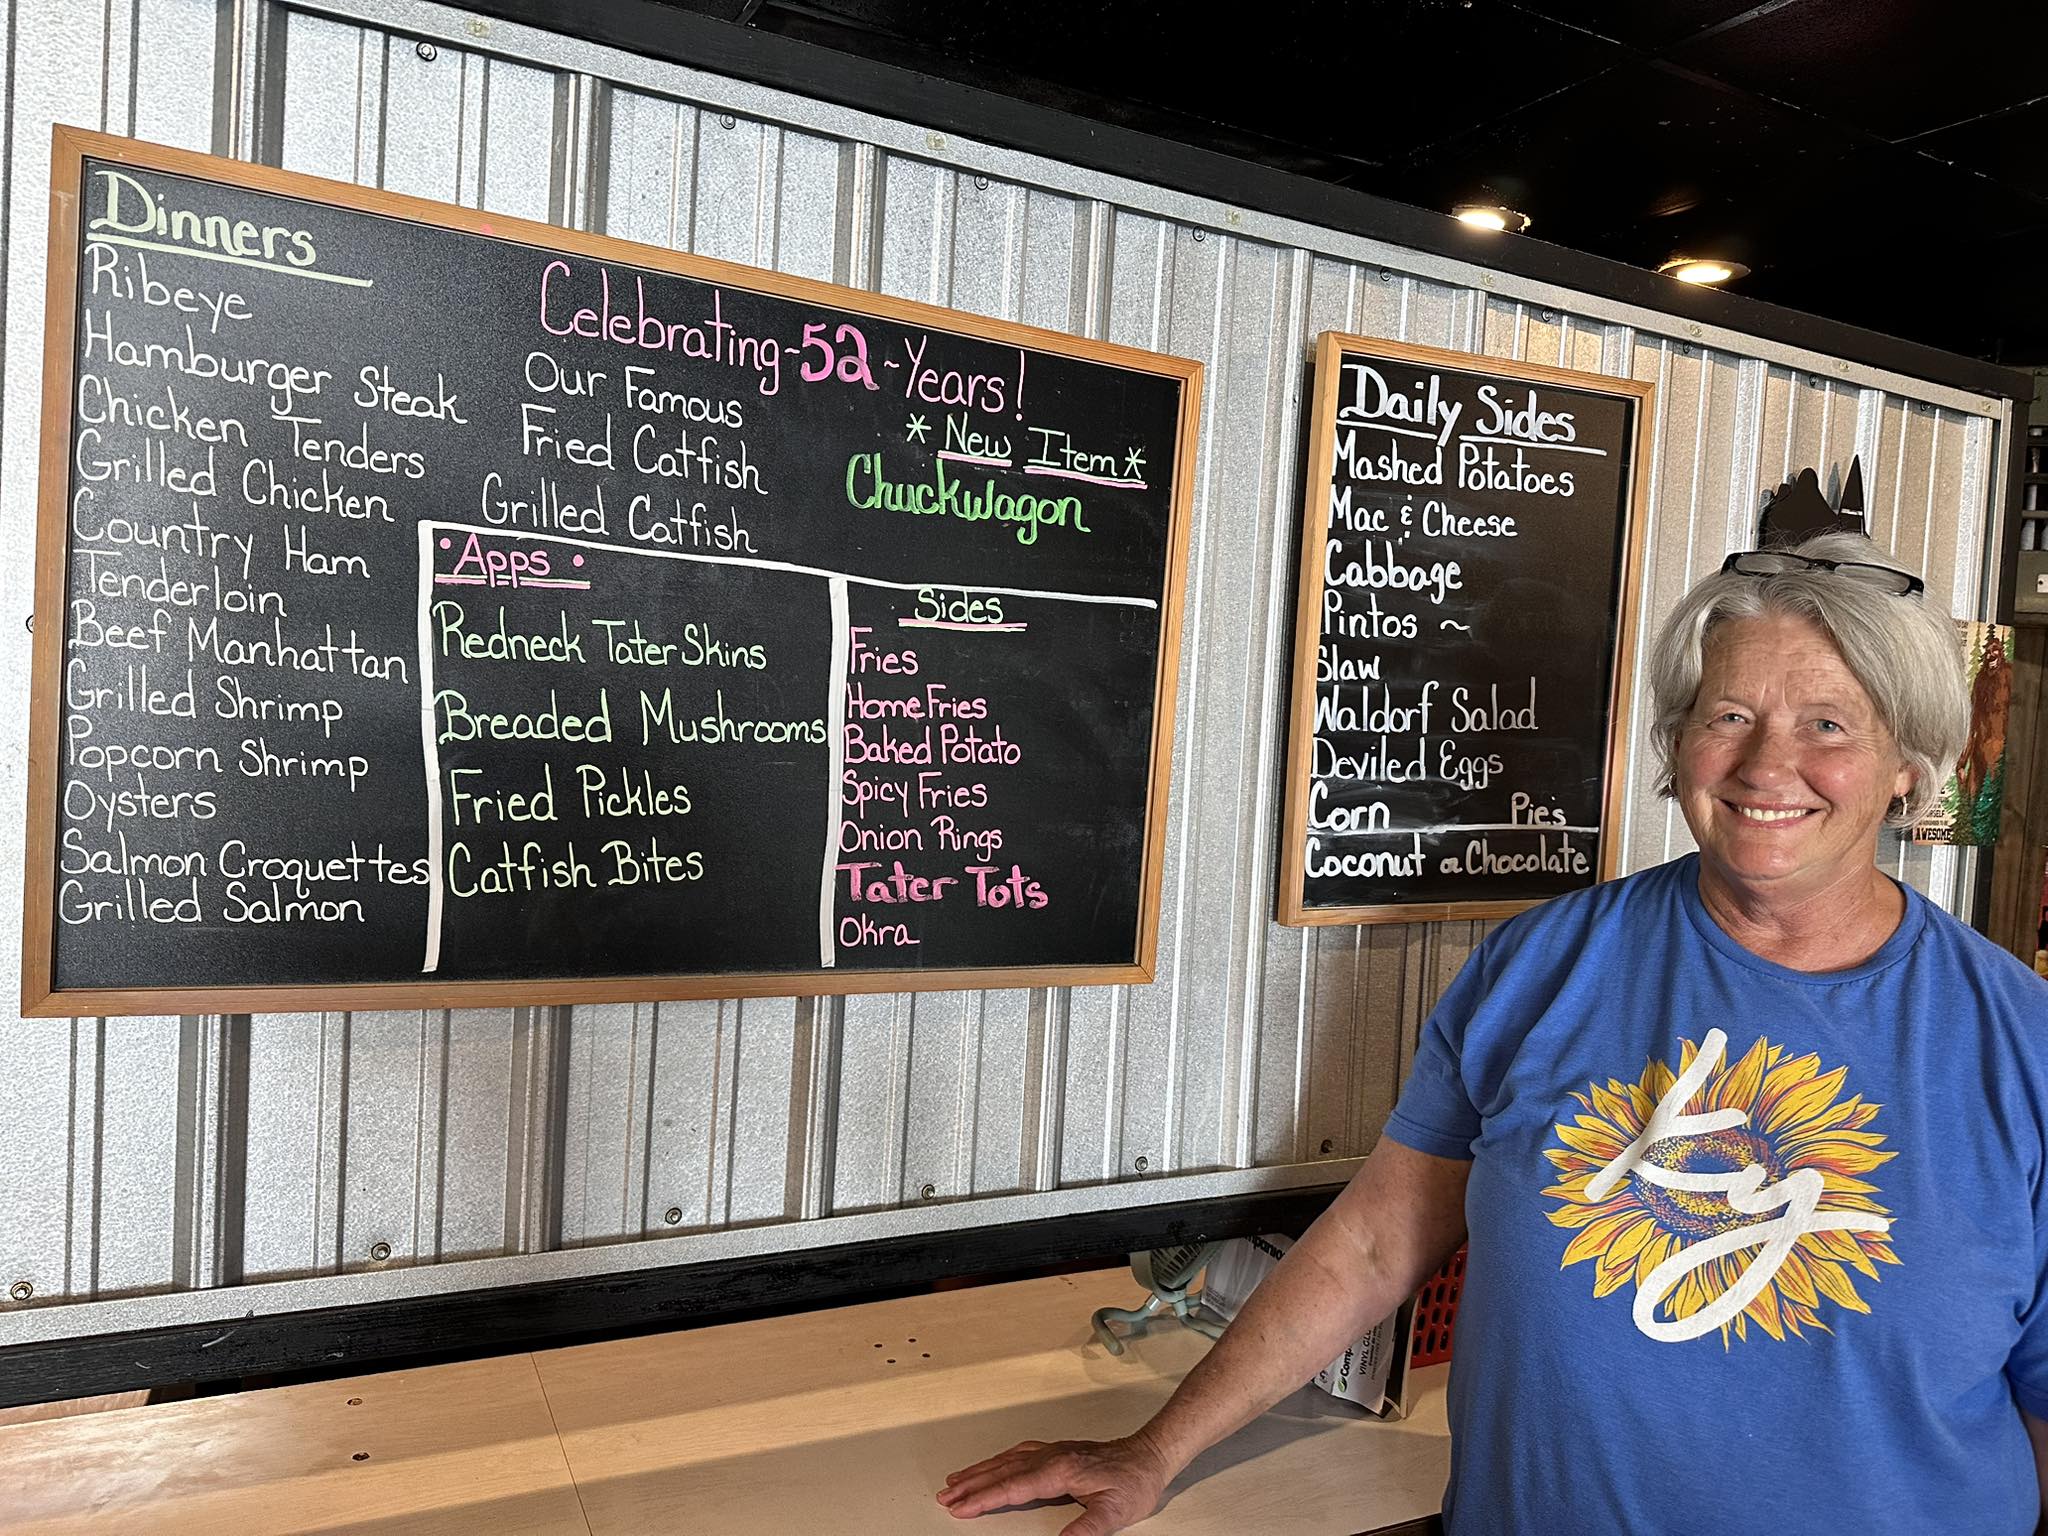 Dinners
Ribeye
Hamburger Steak
Chicken Tenders
Grilled Chicken
Country Ham
Tenderloin
Beef Manhattan
Grilled Shrimp
Popcorn Shrimp
Oysters
Salmon Croquettes
Grilled Salmon
Celebrating-52-Years!
Our Famous
Fried Catfish
Grilled Catfish
* New Item *
Chuckwagon
• Apps •
Redneck Tater Skins
Breaded Mushrooms
Fried Pickles
Catfish Bites
Sides
Fries
Home Fries
Baked Potato
Spicy Fries
Onion Rings
Tater Tots
Okra
Daily Sides
Mashed Potatoes
Mac & Cheese
Cabbage
Pintos ~
Slaw
Waldorf Salad
Deviled Eggs
Corn
Pie's
Coconut or Chocolate
Ky
AWESOME
VINYL CLU